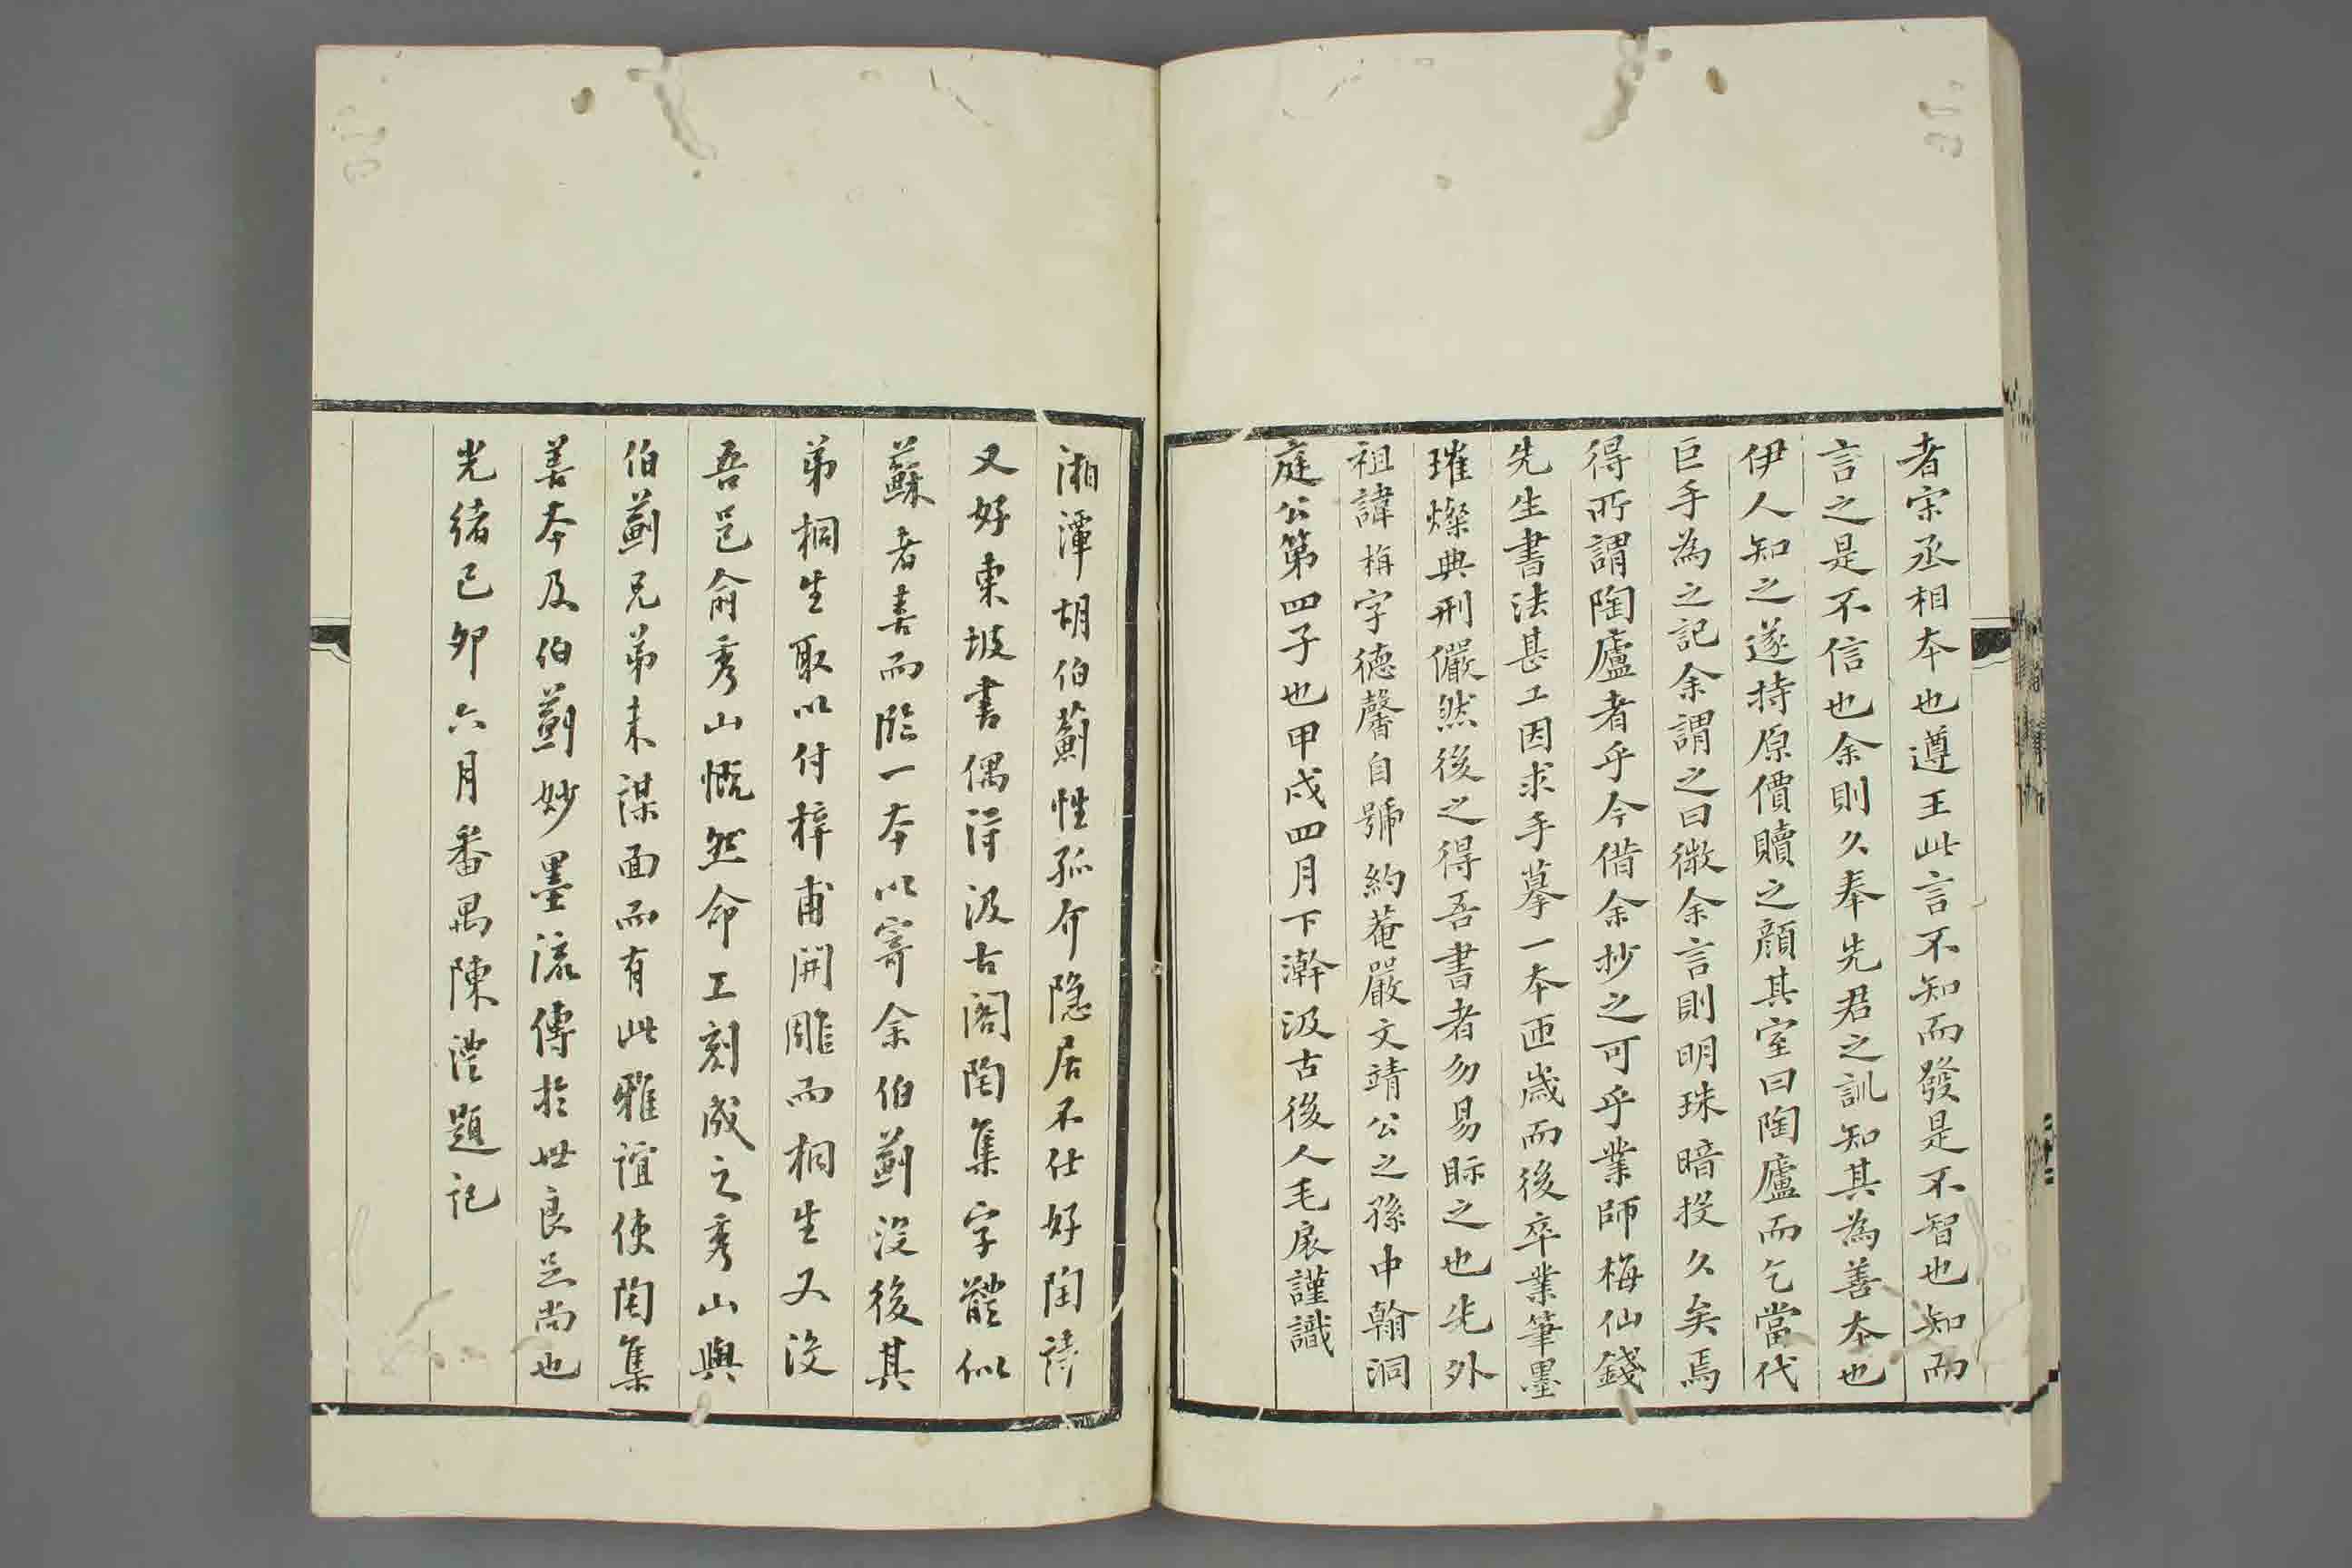 者宋丞相本也遵王此言不知而發是不智也知而
言之是不信也余則久奉先君之訓知其為善本也
伊人知之遂持原價贖之顔其室曰陶廬而乞當代
巨手為之記余謂之曰微余言則明珠暗投久矣焉
得所謂陶廬者乎今借余抄之可乎業師梅仙錢
先生書法甚工因求手摹一本匝歲而後卒業筆墨
璀燦典刑儼然後之得吾書者勿易眎之也先外
祖諱栴字德馨自號約菴嚴文靖公之孫中翰洞
庭公第四子也甲戌四月下澣汲古後人毛扆謹識
湘潭胡伯薊性孤介隱居不仕好陶詩
又好東坡書偶得汲古閣陶集字體似
蘇者喜而臨一本以寄余伯薊没後其
弟桐生取以付梓甫開雕而桐生又没
吾邑俞秀山慨然命工刻成之秀山與
伯薊兄弟未謀面而有此雅誼使陶集
善本及伯薊妙墨流傳於世良足尚也
光緒己卯六月番禺陳澧題記